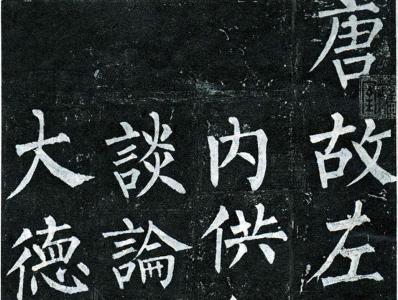 唐故左
内供
談論
大德